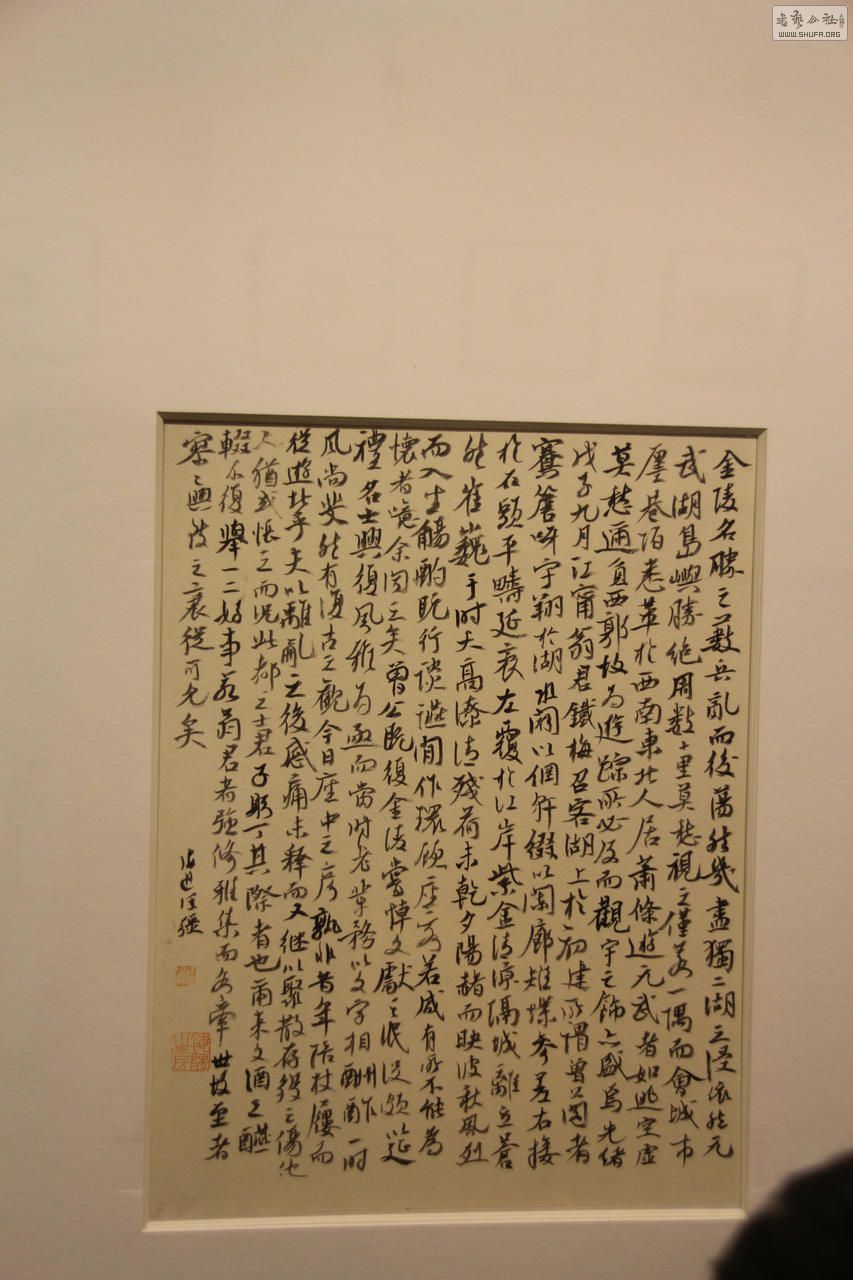 金陵名勝之藪兵亂而後蕩然幾盡獨二湖之漫依然元
武湖島嶼勝絕周數十里莫愁視之僅若一隅而會城市
廛巷陌悉萃於西南東北人居蕭條遊元武者如逃空虛
莫愁逼負西郭故為遊蹤所必及而觀宇之飾亦盛焉光緒
戊子九月江甯翁君鐵梅召客湖上於初建所謂曾閣者
騫簷呀宇翔於湖水闌以網軒綴以閣廊雉堞參差右接
於石頭平疇延袤左覆於江岸紫金清涼隔城離立蒼
然崔巍于时天高潦清殘荷未乾夕陽赭而映波秋風烈
而入坐觴酌既行談讌間作環顧座客若咸有所不能為
懷者噫余固之矣曾公既復金陵嘗悼文獻之泯沒頗以延
禮名士興復風雅為亟而當时老輩務以文字相酬酢一时
風尚斐然有復古之觀今日座中之彥孰非昔年陪杖屨而
從遊於此乎夫以離亂之後感痛未釋而又繼以聚散存歿之傷他
人猶或悵之而況此都之士君子躬丁其際者也爾来文酒之醼
輟不復舉一二好事若翁君者強修雅集而多牽世故至者
寥寥興廢之衰從可見矣
WWW.SHUFA.ORG